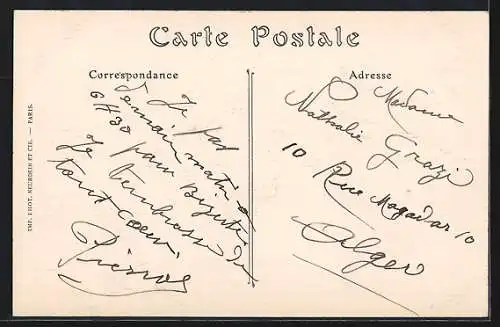 Carte Postale
Correspondance
Je pars
demain matin à
6H30 pour Bizerte
Je t'embrasse de
tout cœur
Adresse
Madame
Nathalie Grazi
10 Rue Mogador 10
Alger
IMP. PHOT. NEURDEIN ET CIE. — PARIS.